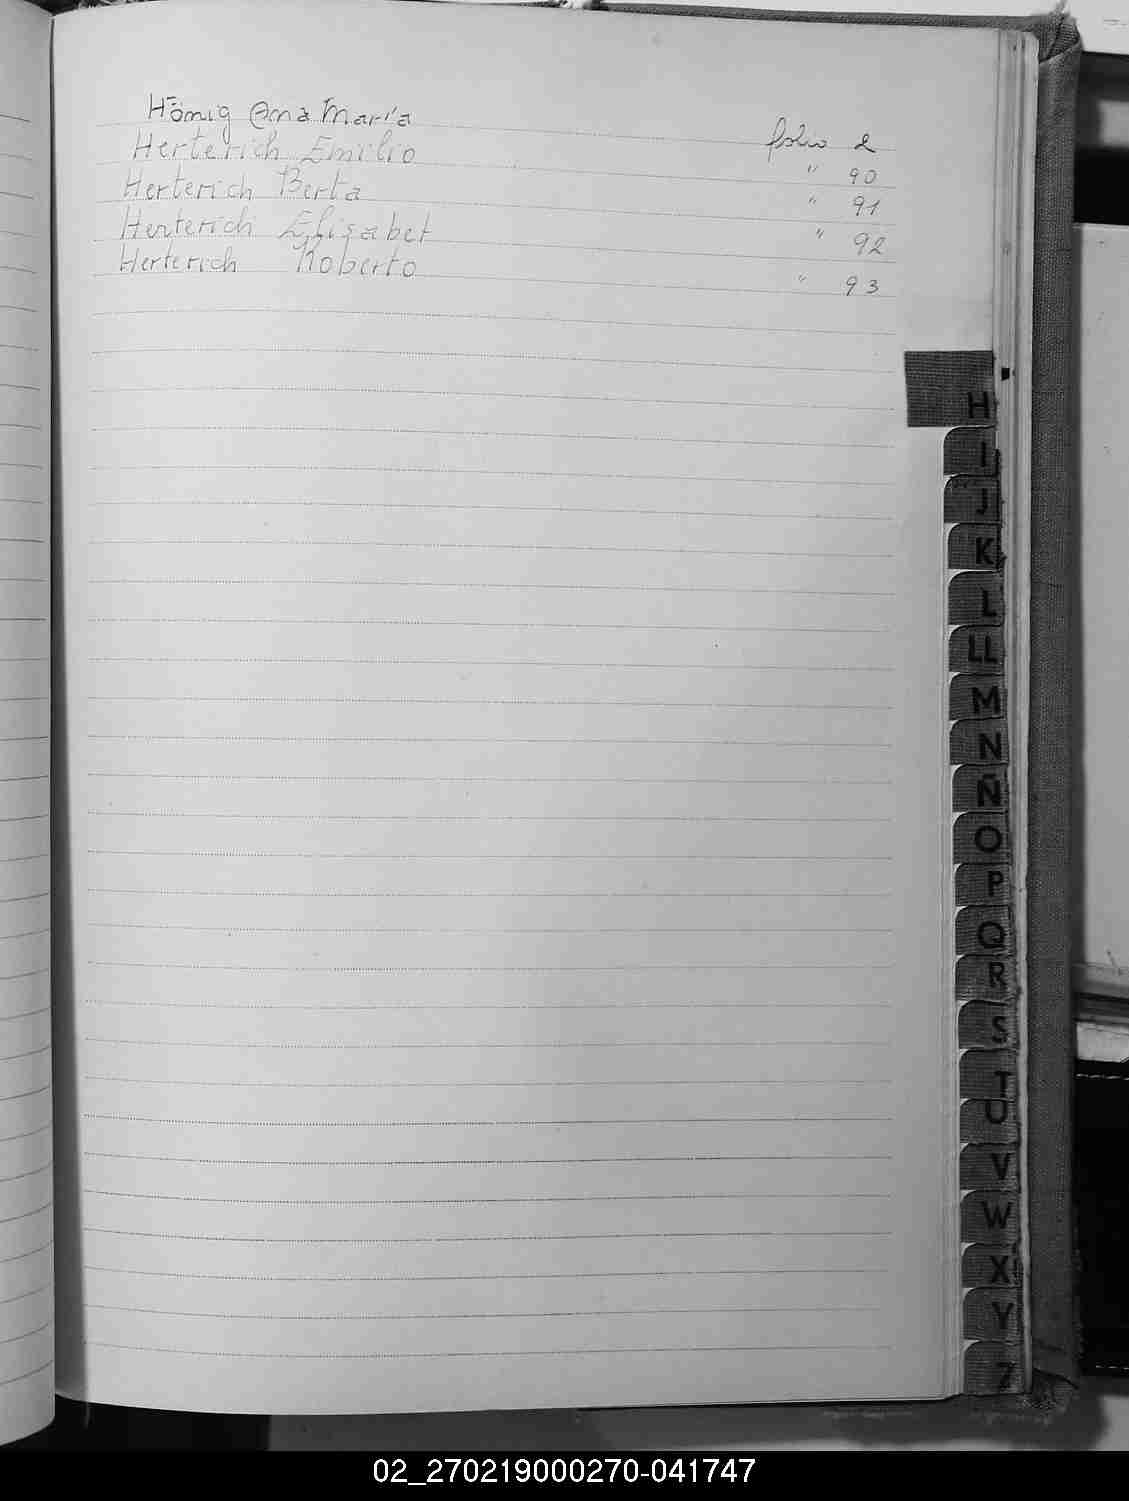 Hönig Ana María folio 2
Herterich Emilio " 90
Herterich Berta " 91
Herterich Elisabet " 92
Herterich Roberto " 93
H
I
J
K
L
LL
M
N
Ñ
O
P
Q
R
S
T
U
V
W
X
Y
Z
02_270219000270-041747